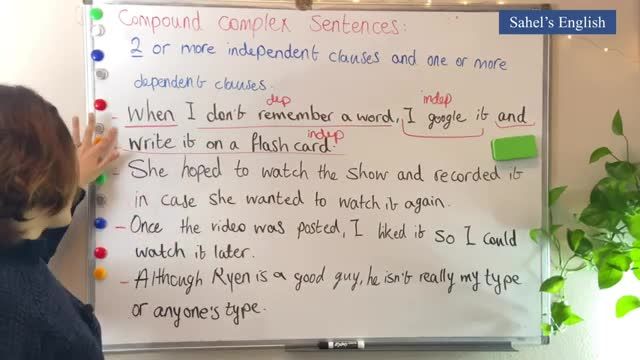 Sahel's English
Compound complex Sentences:
2 or more independent clauses and one or more
dependent clauses.
dep indep
- When I don't remember a word, I google it and
write it on a flash card. indep
- She hoped to watch the show and recorded it
in case she wanted to watch it again.
- Once the video was posted, I liked it so I could
watch it later.
- Although Ryen is a good guy, he isn't really my type
or anyone's type.